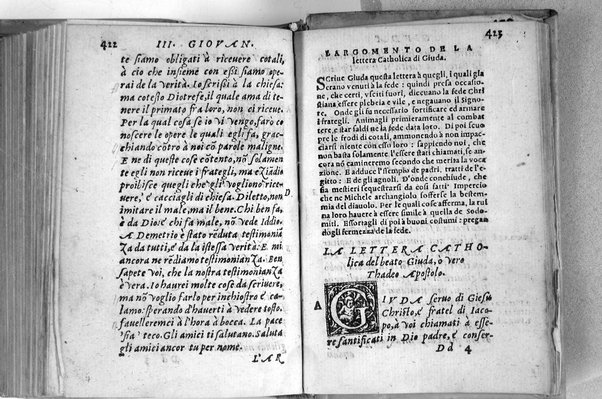 422 III. GIOVAN.
te siamo obligati à ricevere cotali,
à ciò che insieme con essi siamo opera
rai de la verità. Io scrissi à la chiesa:
ma cotesto Diotrefe, il quale ama di te-
nere il primato fra loro, non ci riceve.
Per la qual cosa se io vi vengo, farò co
noscere le opere le quali egli fa, grac-
chiando cōtro à noi cō parole maligne.
E ne di queste cose cōtento, nō solamen
te egli non riceve i frategli, ma eziādio
proibisce quegli che gli vogliono ricev
vere, e cacciagli di chiesa. Diletto, non
imitare il male, ma il bene. Chi ben fa,
è da Dio: e chi fa male, nō vede Iddio.
A Demetrio è stato rēduta testimoniā
za da tutti, e da la istessa verità: E noi
ancora ne rēdiamo testimoniāza. E ben
sapete voi, che la nostra testimonianza
è vera. Io haurei molte cose da scrivere,
ma nō voglio farlo per inchiostro e ca-
lamo: sperando d'hauerti à vedere tosto.
e favelleremci à l'hora à bocca. La pace
sia teco. Gli amici ti salutano. Saluta
gli amici ancor tu per nome.
L'AR
423
L'ARGOMENTO DE LA
lettera Catholica di Giuda.
SCriue Giuda questa lettera à quegli, i quali gla
erano venuti à la fede: quindi presa occasio-
ne, che certi, vsciti fuori, diceuano la fede Chri
stiana essere plebeia e vile, e negauano il signo-
re. Onde gli fu necessario fortificare ed armare
i frategli. Animagli primieramente al combat
tere, e star saldi ne la fede data loro. Di poi scuo
pre le frodi di cotali, ammonendo à non impac-
ciarsi niente con esso loro: sappiendo noi, che
non basta solamente l'essere stati chiamati, se an-
cora nō camineremo secondo che merita la voca
zione. E adduce l'esempio de padri, tratti de l'E-
gitto: E de gli agnoli. D'onde conchiude, che
fia mestieri sequestrarsi da cosi fatti: Impercio
che ne Michele archangiolo sofferse la bestem-
mia del diauolo. Per le quali cose afferma, la rui
na loro hauere à essere simile à quella de Sodo-
miti. Essortagli di poi à buoni costumi: pregan
dogli fermezza de la fede.
LA LETTERA CATHO-
lica del beato Giuda, ò vero
Thadeo Apostolo.
A
GIVDA seruo di Giesù
Christo, e fratel di Iaco-
po, à voi chiamati à esse-
re santificati in Dio padre, e conser-
Dd 4